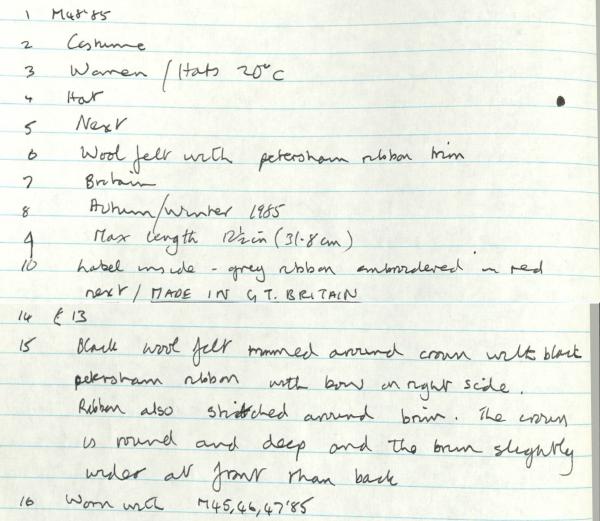 1 M48'85
2 Costume
3 Women / Hats 20°C
4 Hat
5 Next
6 Wool felt with petersham ribbon trim
7 Britain
8 Autumn/Winter 1985
9 Max Length 12½in (31.8cm)
10 Label inside - grey ribbon embroidered in red
next / MADE IN GT. BRITAIN
14 £13
15 Black wool felt trimmed around crown with black
petersham ribbon with bow on right side.
Ribbon also stitched around brim. The crown
is round and deep and the brim slightly
wider at front than back
16 Worn with M45,46,47'85